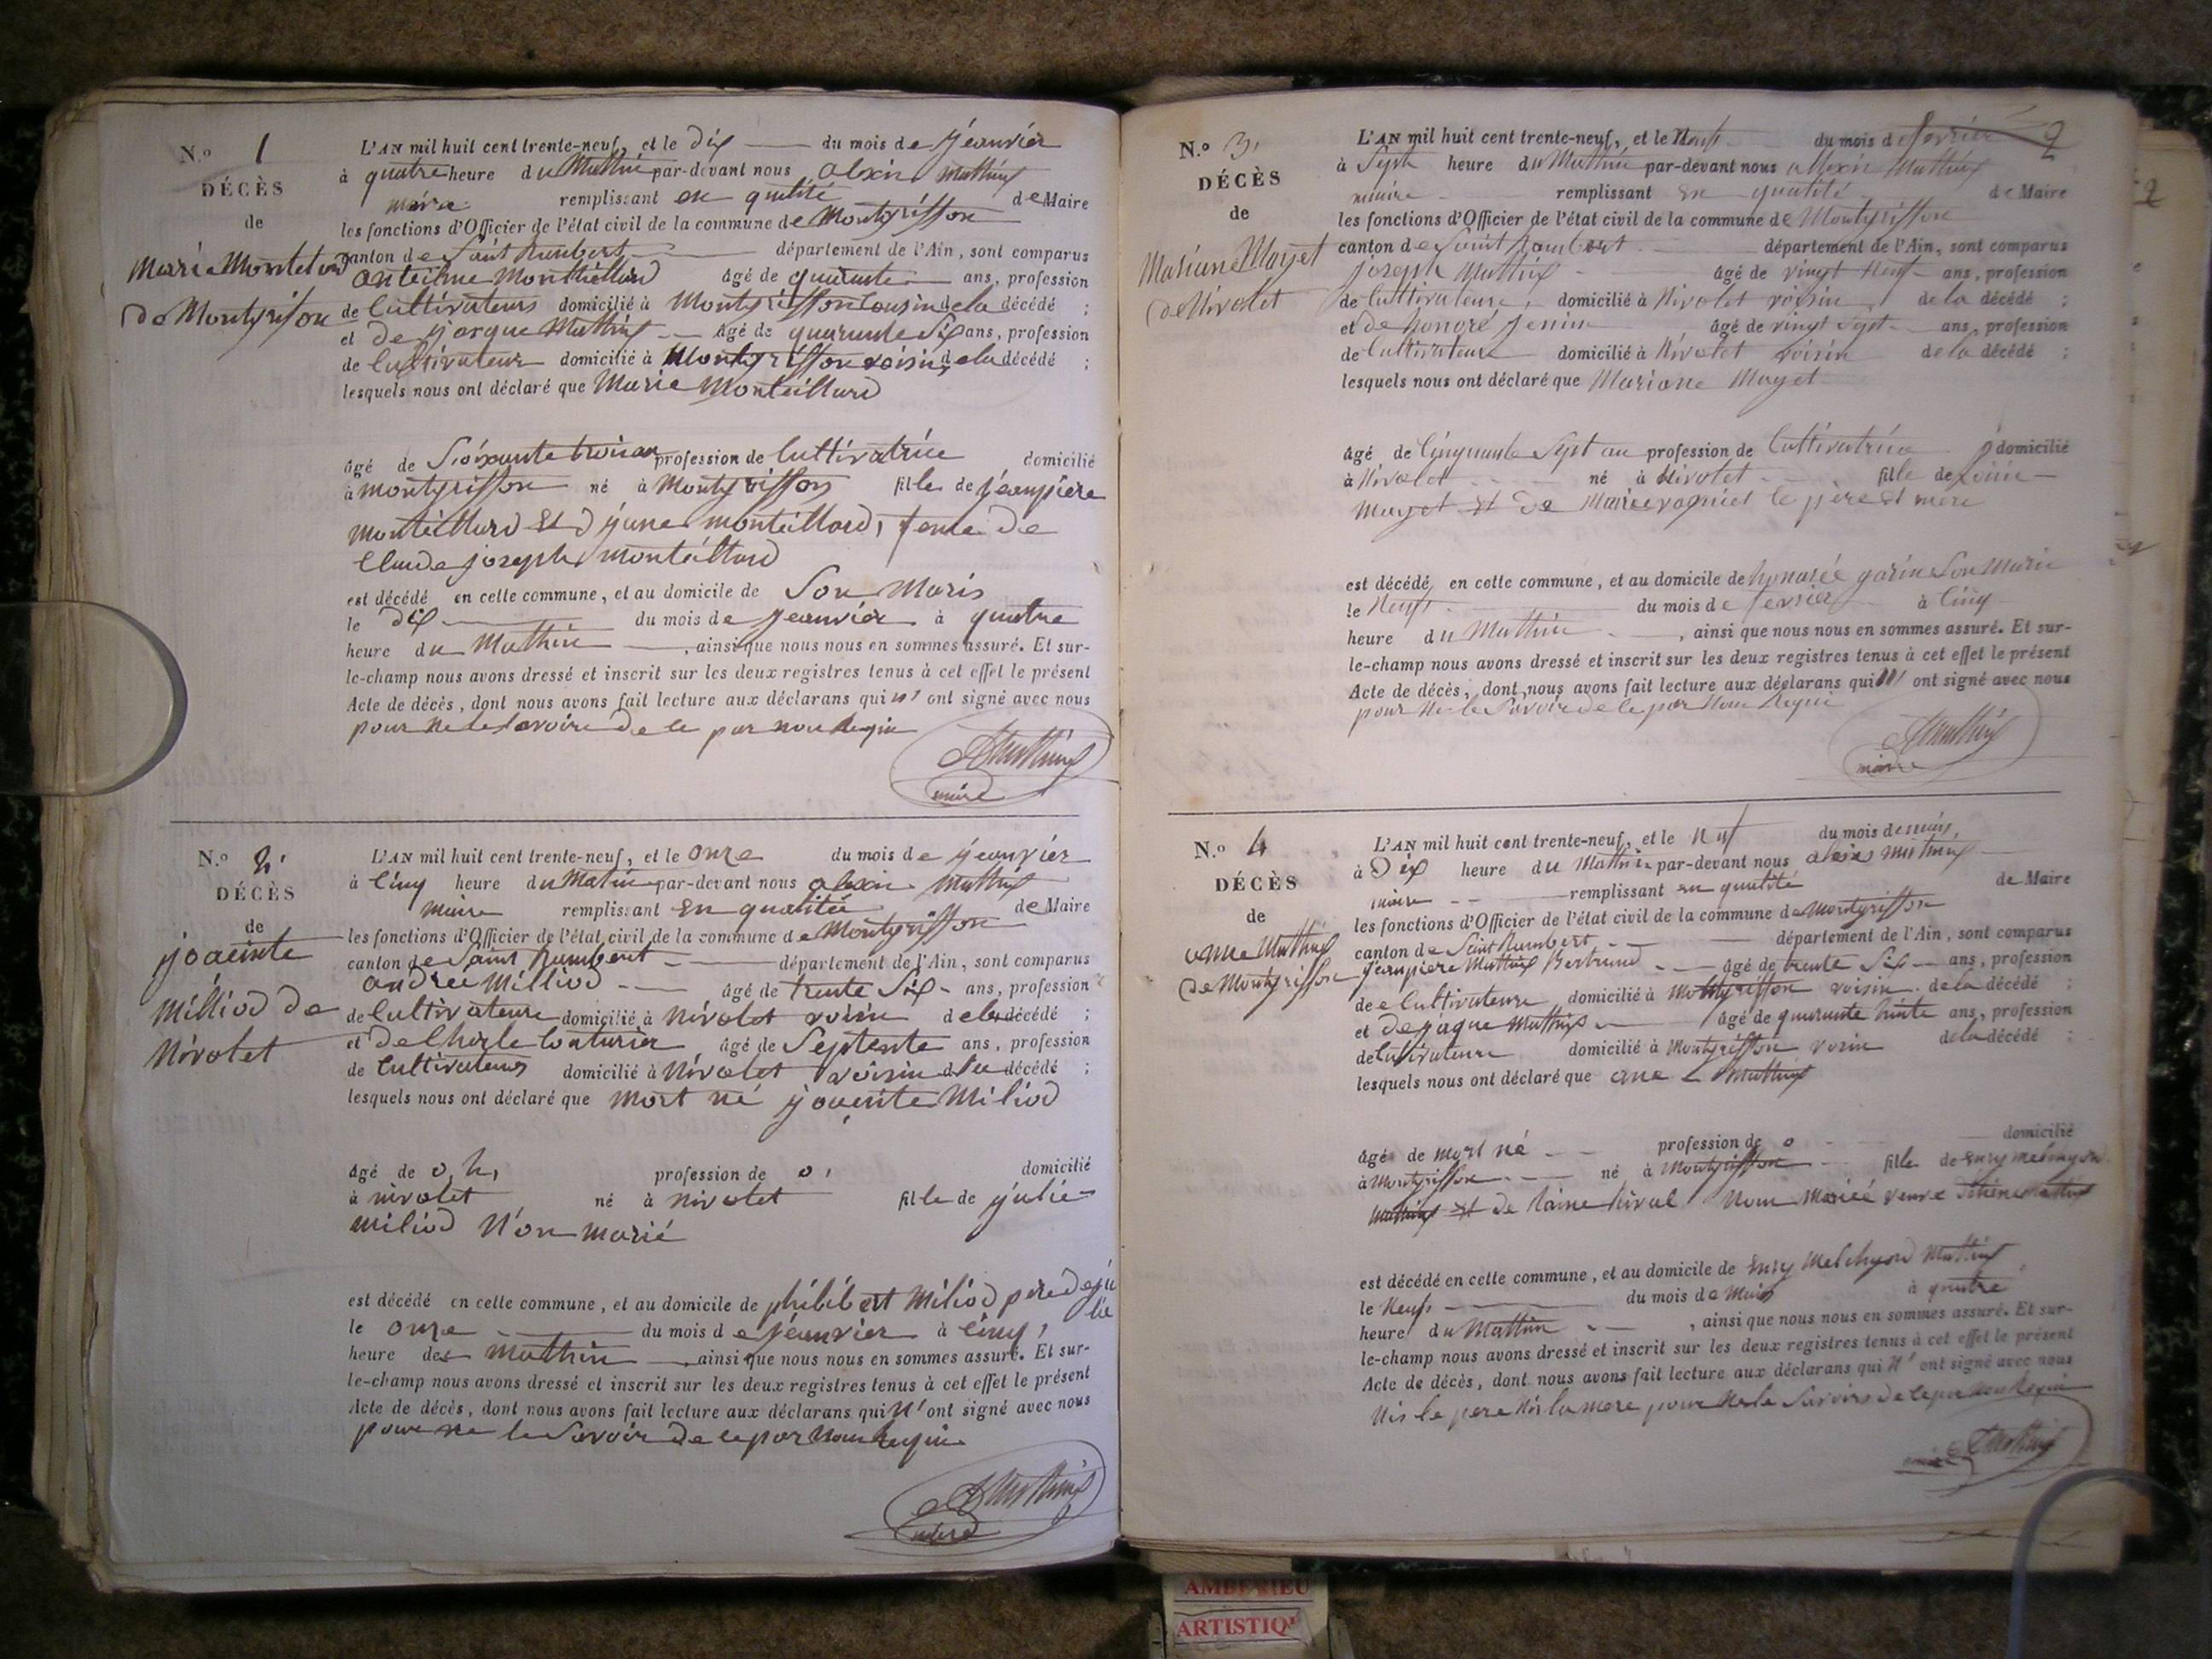 N.o 1
DÉCÈS
de
Marie Monteliard
de Montgrifon
L'AN mil huit cent trente-neuf, et le dix du mois de jeanvier
à quatre heure du Mathin par-devant nous alexin mathieux
maire remplissant en qulité de Maire
les fonctions d'Officier de l'état civil de la commune de Montgriffon
canton de Saint Rambert département de l'Ain, sont comparus
anteilme Monteillard âgé de quarante ans, profession
de Cultivateurs domicilié à Montgriffon Cousin de la décédé ;
et de jorque Mathieux âgé de quarante Six ans, profession
de Cultivateur domicilié à Montgriffon voisin de la décédé ;
lesquels nous ont déclaré que Marie Monteillard
âgé de Soixante trois an profession de Cultivatrice domicilié
à montgriffon né à Montgriffon fille de jeanpiere
monteillard et d jeane monteillard, feme de
Claude joseph monteillard
est décédé en cette commune, et au domicile de Son Maris
le dix du mois de jeanvier à quatre
heure du Mathin, ainsi que nous nous en sommes assuré. Et sur-
le-champ nous avons dressé et inscrit sur les deux registres tenus à cet effet le présent
Acte de décès, dont nous avons fait lecture aux déclarans qui n' ont signé avec nous
pour ne le Savoire de le par nou Requi
AMathieux
maire
N.o 2
DÉCÈS
de
joaeinte
Milliod de
Nivolet
L'AN mil huit cent trente-neuf, et le onze du mois de jeanvier
à Cinq heure du Matin par-devant nous alexin Mathieux
Maire remplissant En qualitée de Maire
les fonctions d'Officier de l'état civil de la commune de Montgriffon
canton de Saint Rambert département de l'Ain, sont comparus
andrée Milliod âgé de trente Six ans, profession
de Cultivateure domicilié à Nivolet voisin de la décédé ;
et de Charle Couturier âgé de Septente ans, profession
de Cultivateurs domicilié à Nivolet voisin d la décédé ;
lesquels nous ont déclaré que mort né joaeinte Miliod
âgé de 0 h, profession de 0, domicilié
à nivolet né à nivolet fille de julie
miliod Non marié
est décédé en cette commune, et au domicile de philibert Miliod pere de ju
lie
le onze du mois de jeanvier à Cinq,
heure des Mathin, ainsi que nous nous en sommes assuré. Et sur-
le-champ nous avons dressé et inscrit sur les deux registres tenus à cet effet le présent
Acte de décès, dont nous avons fait lecture aux déclarans qui N' ont signé avec nous
pour ne le Savoir de le par nou Requi
AMathieux
maire
2
N.o 3,
DÉCÈS
de
Mariane Mayet
de Nivolet
L'AN mil huit cent trente-neuf, et le Neuf du mois de fevrier
à Sept heure du Mathin par-devant nous allexin Mathieux
maire remplissant en qualité de Maire
les fonctions d'Officier de l'état civil de la commune de Montgriffon
canton de Saint Rambert département de l'Ain, sont comparus
joseph Mathieux âgé de vingt Neuf ans, profession
de Cultivateure, domicilié à Nivolet voisin de la décédé ;
et de honoré jenin âgé de vingt Sept ans, profession
de Cultivateure domicilié à Nivolet voisin de la décédé ;
lesquels nous ont déclaré que Mariane Mayet
âgé de Cinquante Sept an profession de Cultivatrice domicilié
à Nivolet né à Nivolet fille de
Mayet et de Mariee le père et mere
est décédé en cette commune, et au domicile de honorée Son Marie
le Neuf du mois de fevrier à Cinq
heure du Mathin, ainsi que nous nous en sommes assuré. Et sur-
le-champ nous avons dressé et inscrit sur les deux registres tenus à cet effet le présent
Acte de décès, dont nous avons fait lecture aux déclarans qui N' ont signé avec nous
pour Ne le Savoir de le par Nou Requi
AMathieux
maire
N.o 4
DÉCÈS
de
anne Mathieux
de Montgriffon
L'AN mil huit cent trente-neuf, et le Neuf du mois de mars,
à Dix heure du Mathin par-devant nous alexis mathieux
maire remplissant en qualité de Maire
les fonctions d'Officier de l'état civil de la commune de Montgriffon
canton de Saint Rambert département de l'Ain, sont comparus
jeanpiere Mathieux Bertrand âgé de trente Six ans, profession
de Cultivateure domicilié à Montgriffon voisin de la décédé ;
et de jaque Mathieux âgé de quarante huite ans, profession
de Cultivateure domicilié à Montgriffon voisin de la décédé ;
lesquels nous ont déclaré que ane Mathieux
âgé de mort né profession de 0 domicilié
à Montgriffon né à Montgriffon fille de
Mathieux et de Nom Mariée veuve
est décédé en cette commune, et au domicile de Mathieux
le Neuf du mois de Mars à quatre
heure du Matthin, ainsi que nous nous en sommes assuré. Et sur-
le-champ nous avons dressé et inscrit sur les deux registres tenus à cet effet le présent
Acte de décès, dont nous avons fait lecture aux déclarans qui N' ont signé avec nous
Nis le pere Nis la mere pour Ne le Savoire de le par nou Requi
AMathieux
maire
AMBERIEU
ARTISTIQU